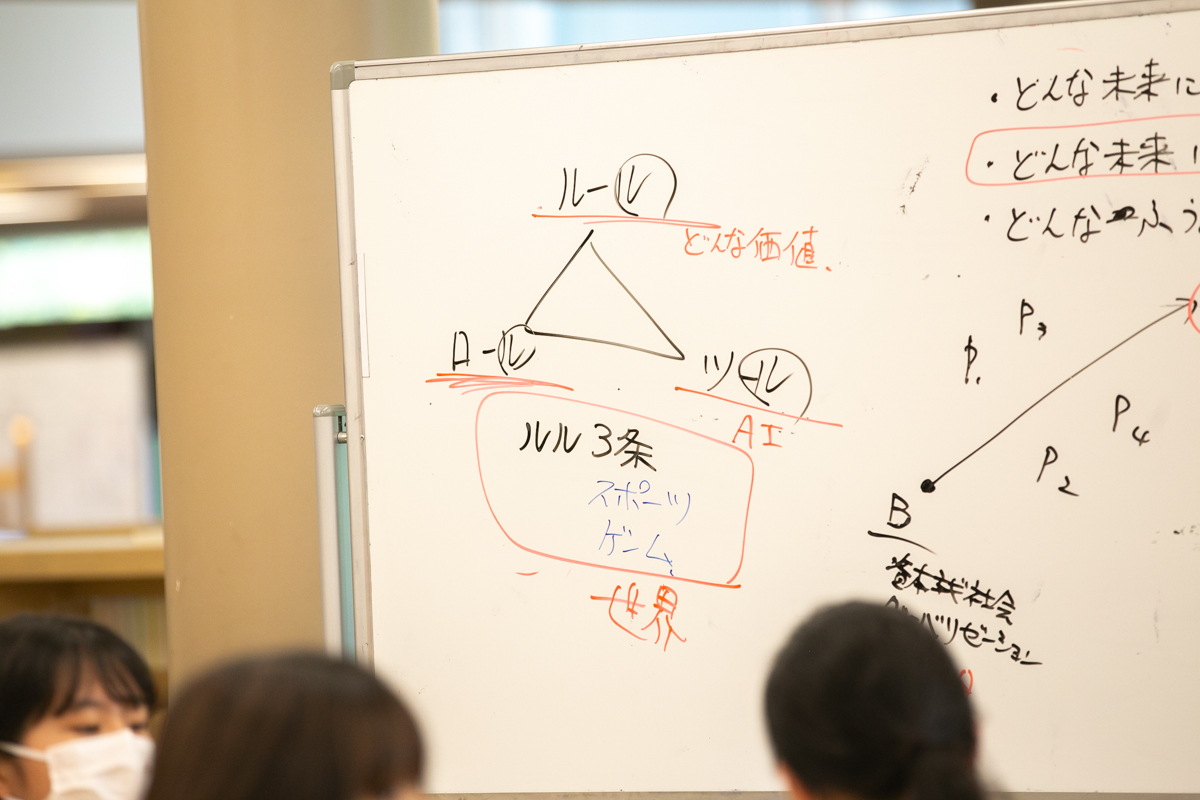 ルール
どんな価値.
ロール
ツール
AI
ルル3条
スポーツ
ゲーム
世界
・どんな未来に
・どんな未来
・どんな
P3
P1
P4
P2
B
資本主義社会
バリゼーション